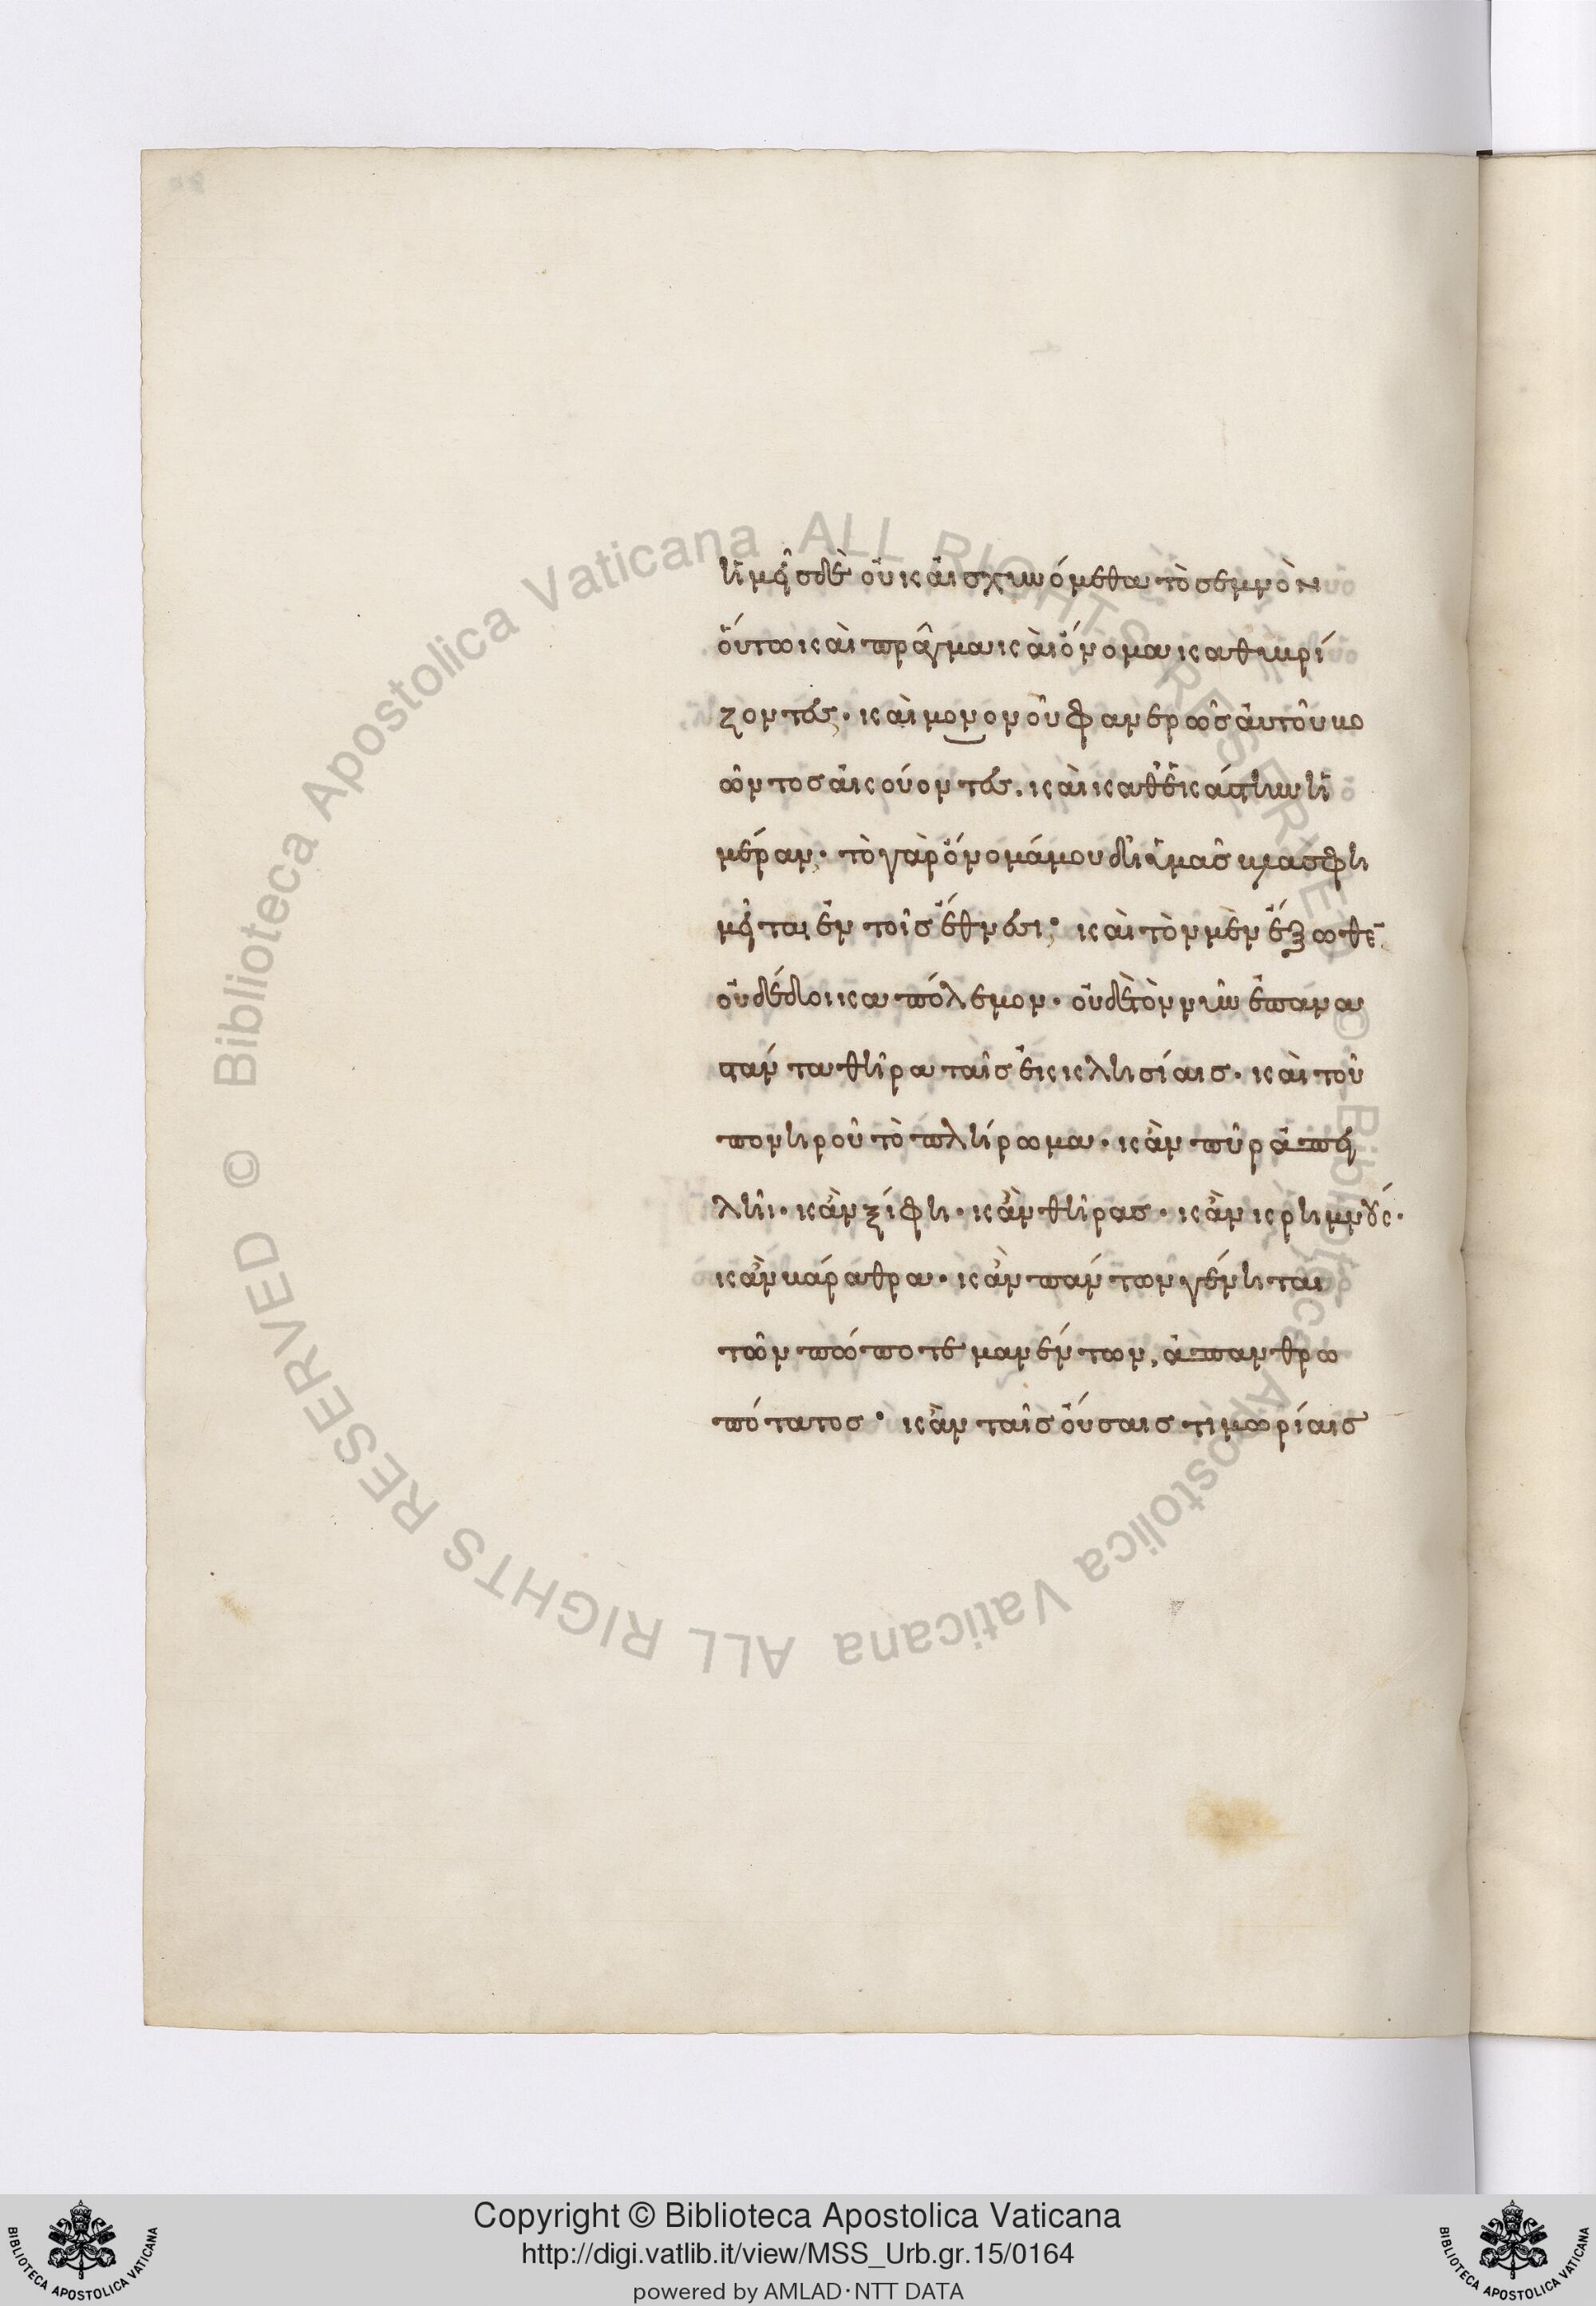 ἡμεῖς δὲ οὐκ αἰσχυνόμεθα τὸ σεμνὸν
οὕτω καὶ πρᾶγμα καὶ ὄνομα καθυβρί
ζοντες· καὶ μονονοὺ φανερῶς αὐτοῦ βο
ῶντος ἀκούοντες. καὶ καθ' ἑκάστην ἡ
μέραν· τὸ γὰρ ὄνομά μου δι' ὑμᾶς βλασφη
μεῖται ἐν τοῖς ἔθνεσι· καὶ τὸν μὲν ἔξωθε̄
οὐ δέδοικα πόλεμον· οὐδὲ τὸν νῦν ἐπανα
στάντα θῆρα ταῖς ἐκκλησίαις· καὶ τοῦ
πονηροῦ τὸ πλήρωμα· κἂν πῦρ ἀπει
λῆι· κἂν ξίφη· κἂν θῆρας· κἂν κρημνούς·
κἂν βάραθρα· κἂν πάντων γένηται
τῶν πώποτε μανέντων, ἀπανθρω
πότατος· κἂν ταῖς οὔσαις τιμωρίαις
© Biblioteca Apostolica Vaticana ALL RIGHTS RESERVED © Biblioteca Apostolica Vaticana ALL RIGHTS RESERVED
Copyright © Biblioteca Apostolica Vaticana
http://digi.vatlib.it/view/MSS_Urb.gr.15/0164
powered by AMLAD·NTT DATA
BIBLIOTECA APOSTOLICA VATICANA
BIBLIOTECA APOSTOLICA VATICANA